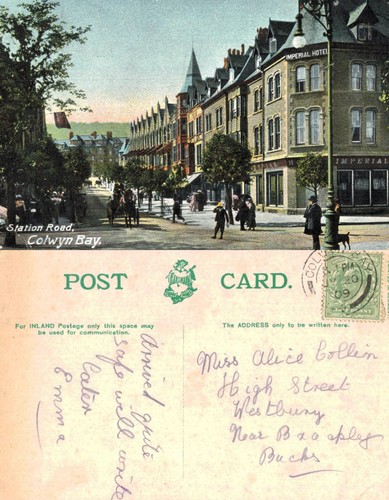 IMPERIAL HOTEL
IMPERIAL
Station Road,
Colwyn Bay.
POST CARD.
For INLAND Postage only this space may
be used for communication.
The ADDRESS only to be written here.
Arrived quite
safe well write
Later
Emma
Miss Alice Collin
High Street
Westbury
Near Brackley
Bucks